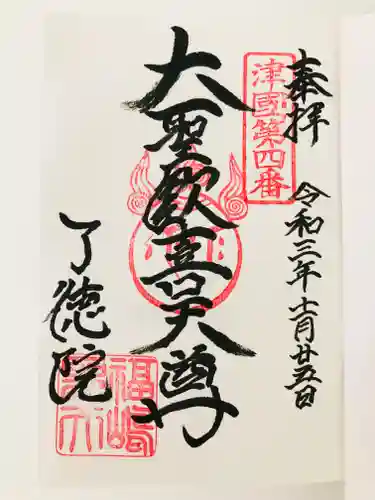 奉拝
令和三年十一月廿五日
津國第四番
大聖歓喜天尊
了徳院
福崎